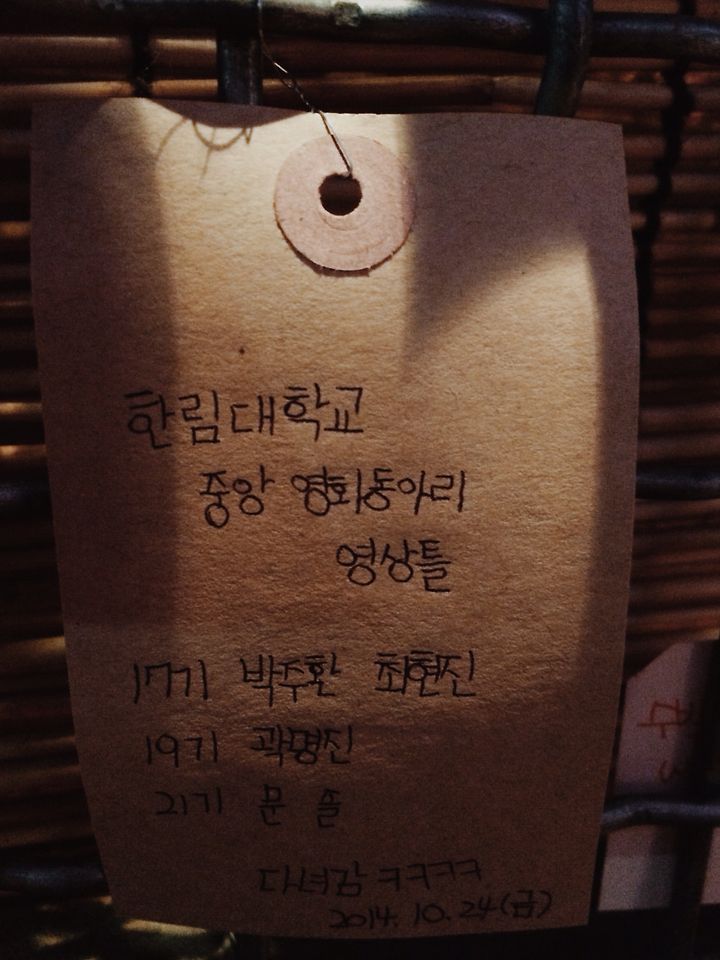 한림대학교
중앙 영화동아리
영상틀
17기 박주환 최현진
19기 곽명진
21기 문
다녀감 ㅋㅋㅋㅋ
2014. 10. 24 (금)